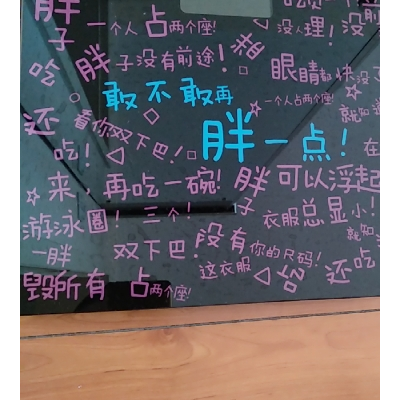 胖 一个人占两个座! 吃
子 没人理! 没
吃 胖子没有前途! 眼睛
敢不敢再
一个人占两个座!
还 看你双下巴!
胖一点! 在
吃!
来,再吃一碗! 胖可以浮起
游泳圈! 三个! 子 衣服总显小!
一胖 双下巴! 没有你的尺码!
这衣服 还吃
毁所有 占两个座!